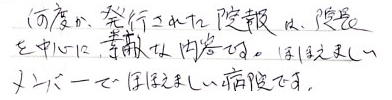 何度か、発行された院報は、院長
を中心に素敵な内容です。ほほえましい
メンバーでほほえましい病院です。